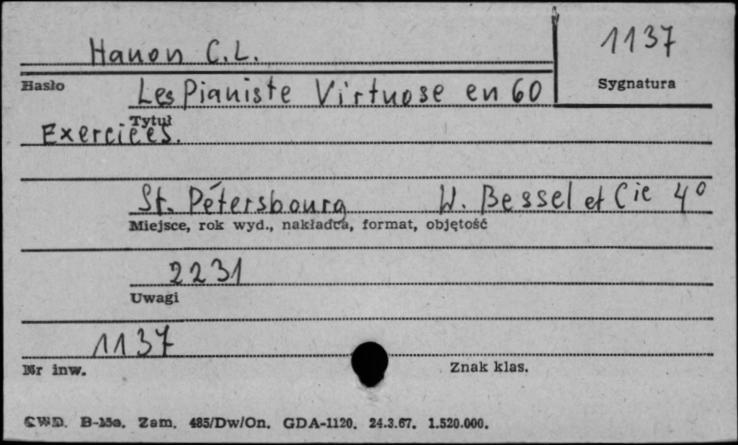 Hanon C.L.
1137
Hasło
Sygnatura
Les Pianiste Virtuose en 60
Tytuł
Exercices.
St. Pétersbourg W. Bessel et Cie 4°
Miejsce, rok wyd., nakładca, format, objętość
2231
Uwagi
1137
Nr inw.
Znak klas.
CWD. B-15a. Zam. 485/Dw/On. GDA-1120. 24.3.67. 1.520.000.